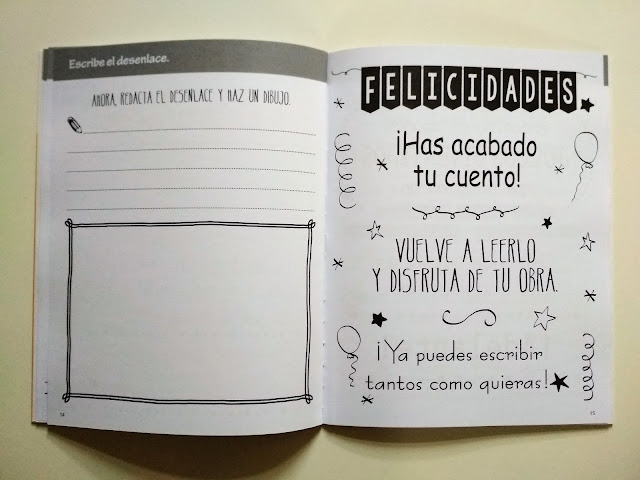 Escribe el desenlace.
AHORA, REDACTA EL DESENLACE Y HAZ UN DIBUJO.
14
FELICIDADES
¡Has acabado
tu cuento!
VUELVE A LEERLO
Y DISFRUTA DE TU OBRA.
¡Ya puedes escribir
tantos como quieras!
15